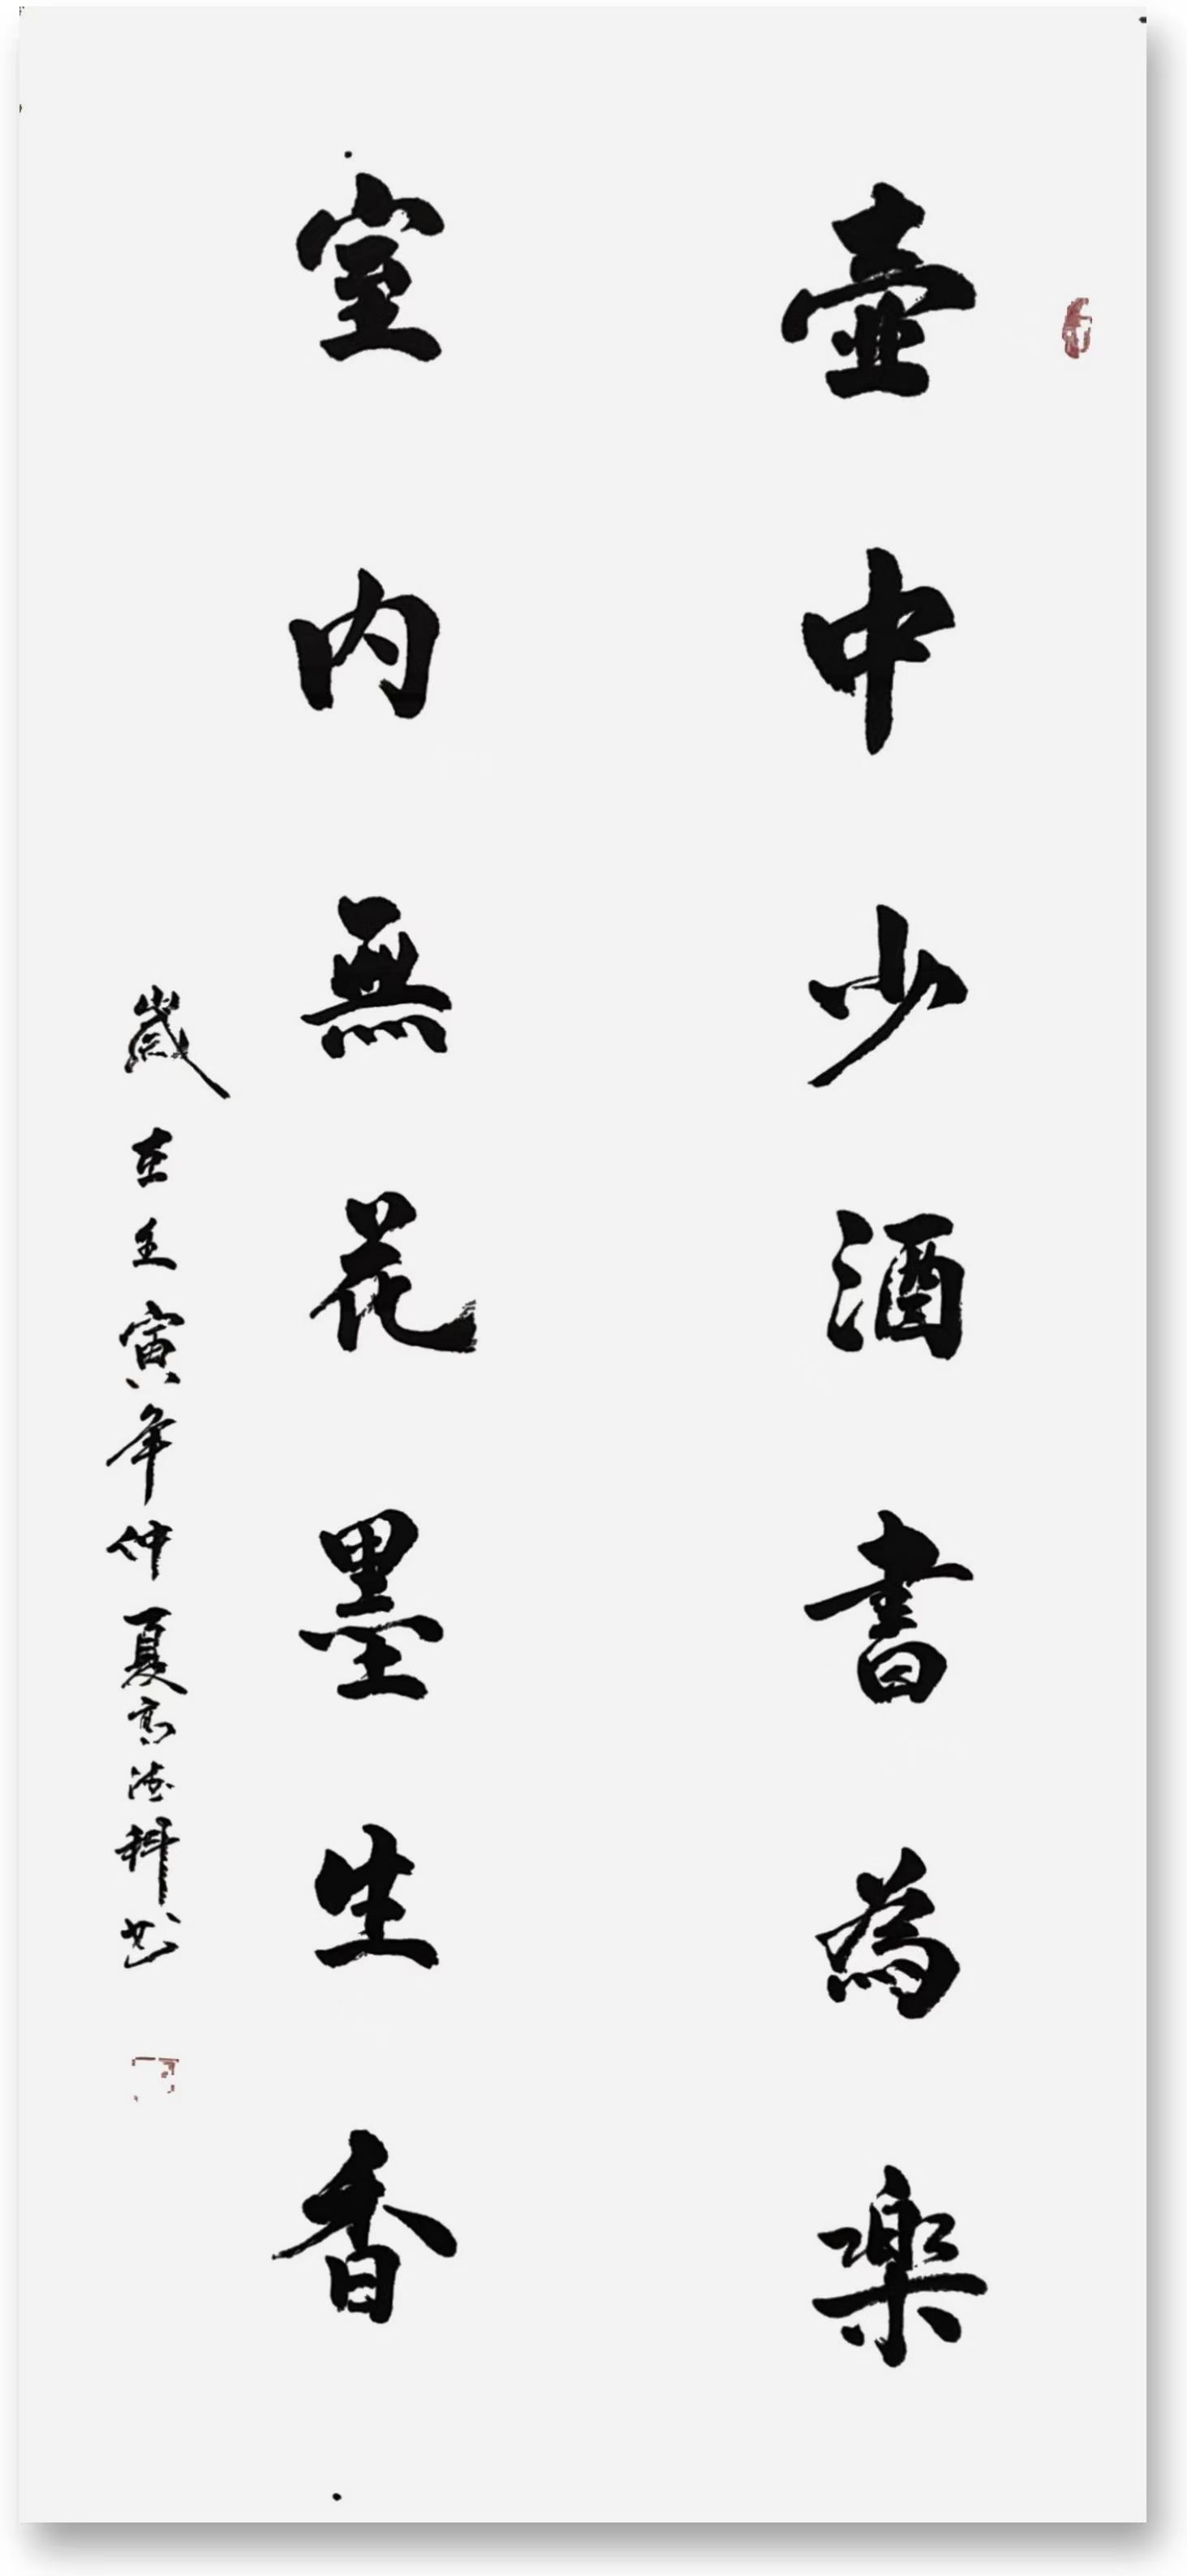 壺中少酒書為楽
室内無花墨生香
歲在壬寅年仲夏高德科书